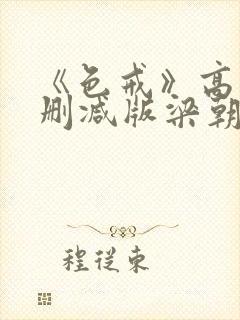 《色戒》高
删减版梁朝
程从东